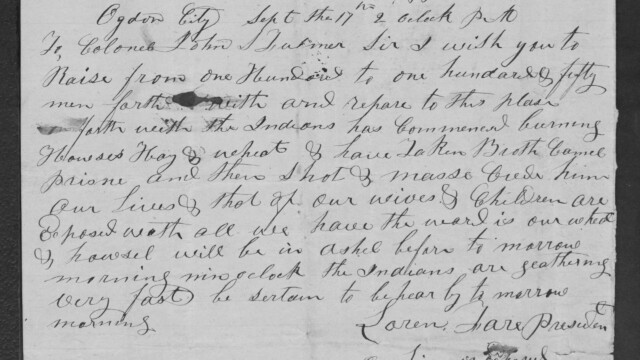 Ogdon City Sept the 17th 2 oclock P M
To Colonel John S Fulmer Sir I wish you to
Raise from one Hundord to one hundord & fifty
men forth with and repare to this plase
forth with the Indians has Commencd burning
Howses Hay & wheat & have Taken Broth Camel
Prisne and then Shot & massecrede him
our lives & that of our wives & Children are
Exposed with all we have the ward is our
& howsel will be in ashel before to morrow
morning nin oclock the Indians are geathering
very fast be sertain to be hear by to morrow
morning
Loren Fare President